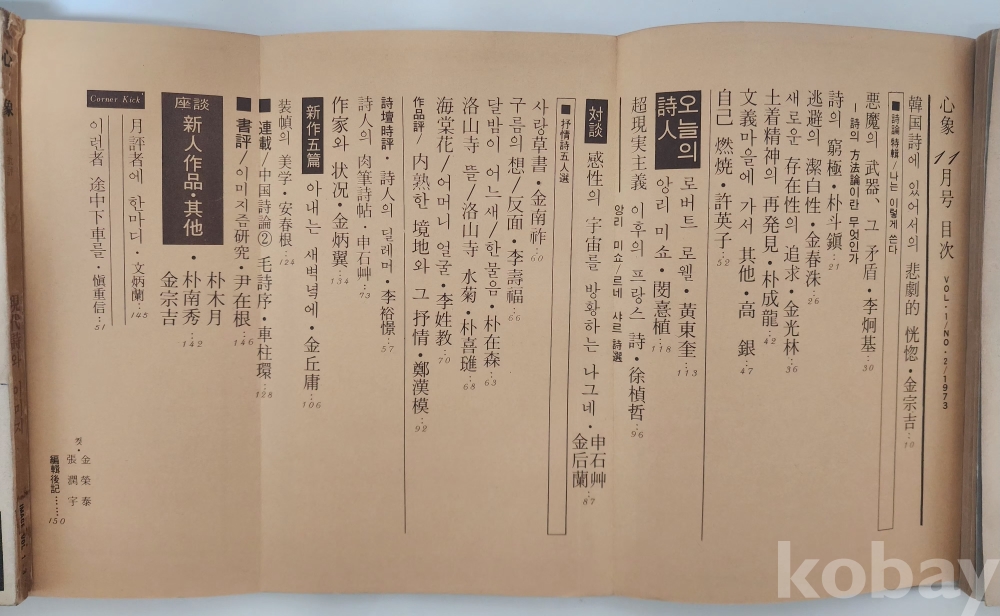 心象 11月号 目次 VOL·1/NO·2/1973
韓国詩에 있어서의 悲劇的 恍惚·金宗吉:10
■詩論特輯/나는 이렇게 쓴다
悪魔의 武器、그 矛盾·李炯基:30
─詩의 方法論이란 무엇인가
詩의 窮極·朴斗鎭:21
逃避의 潔白性·金春洙:26
새로운 存在性의 追求·金光林:36
土着精神의 再発見·朴成龍:42
文義마을에 가서 其他·高 銀:47
自己 燃焼·許英子:52
오늘의 詩人
로버트 로웰·黃東奎:113
앙리 미쇼·閔憙植:118
超現実主義 이후의 프랑스 詩·徐楨哲:96
앙리 미쇼/르네 샤르 詩選
対談 感性의 宇宙를 方黃하는 나그네·申石艸 金后蘭:87
■抒情詩五人選
사랑草書·金南祚:60
구름의 想/反面·李壽福:66
달밤이 어느새/한물음·朴在森:63
洛山寺 뜰/洛山寺 水菊·朴喜璡:68
海棠花/어머니 얼굴·李姓教:70
作品評/内熟한 境地와 그 抒情·鄭漢模:92
詩壇時評·詩人의 딜레머·李裕憬:57
詩人의 肉筆詩帖·申石艸:73
作家와 状况·金炳翼:134
新作五篇 아내는 새벽녘에·金丘庸:106
装幀의 美学·安春根:124
■連載/中国詩論② 毛詩序·車柱環:128
■書評/이미지즘研究·尹在根:146
座談 新人作品·其他·朴木月 朴南秀 金宗吉:142
Corner Kick
月評者에 한마디·文炳蘭:145
이런者 途中下車를·愼重信:51
컷·金榮泰
張潤宇
編輯後記……150
心象
kobay